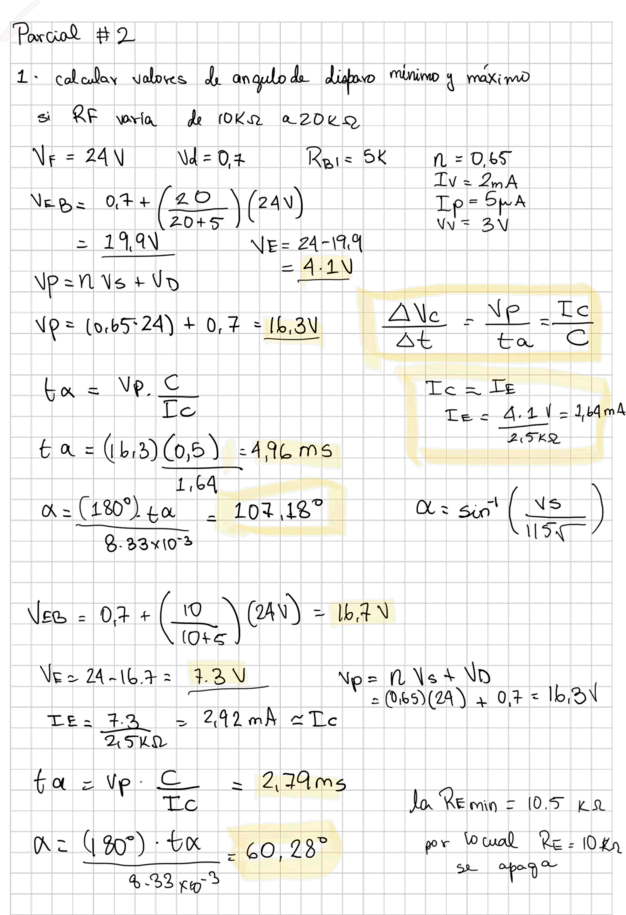 Parcial #2
1. calcular valores de angulo de disparo mínimo y máximo
si RF varía de 10KΩ a 20KΩ
VF = 24V   Vd = 0,7   RB1 = 5K   n = 0,65
Iv = 2mA
Ip = 5μA
Vv = 3V
VEB = 0,7 + (20/(20+5)) (24V)
= 19,9V   VE = 24-19,9
= 4.1V
Vp = n Vs + VD
Vp = (0,65·24) + 0,7 = 16,3V
ΔVc/Δt = Vp/ta = Ic/C
tα = Vp · C/Ic
Ic ≈ IE
IE = 4.1V/2,5KΩ = 1,64mA
ta = (16,3)(0,5)/1,64 = 4,96 ms
α = (180°) · tα/8.33x10⁻³ = 107,18°
α = sin⁻¹ (Vs/115√)
VEB = 0,7 + (10/(10+5)) (24V) = 16,7V
VE = 24-16.7 = 7.3V
Vp = n Vs + VD
= (0,65)(24) + 0,7 = 16,3V
IE = 7.3/2,5KΩ = 2,92 mA ≃ Ic
tα = Vp · C/Ic = 2,79ms
α = (180°) · tα/8.33x10⁻³ = 60,28°
la REmin = 10.5 KΩ
por lo cual RE = 10KΩ
se apaga